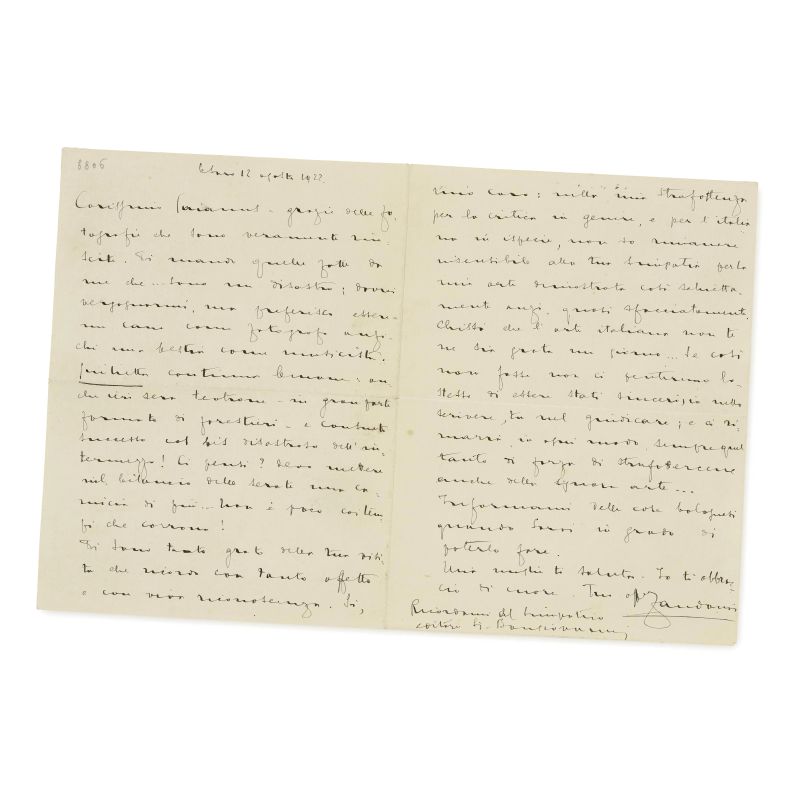 8806
12 agosto 1922
Carissimo - grazie delle fo-
tografie che sono veramente riu-
scite. Ti mando quelle fatte da
me che... sono un disastro; dovrei
vergognarmi, ma preferisco esser
un cane come fotografo anzi-
chè una bestia come musicista.
Giulietta continua benone: an-
che ieri sera teatrone - in gran parte
formato di forestieri - e consueto
successo col bis disastroso dell'in-
termezzo! Ci pensi? devo mettere
nel bilancio delle serate una ca-
micia di più... Non è poco coi tem-
pi che corrono!
Ti sono tanto grato della tua visi-
ta che ricordo con tanto affetto
e con viva riconoscenza. Sì,
mio caro: nella mia strafottenza
per la critica in genere, e per l'italia-
na in ispecie, non so rimanere
insensibile alla tua simpatia per la
mia arte dimostrata così schietta-
mente anzi, quasi sfacciatamente.
Chissà che l'arte italiana non te
ne sia grata un giorno... Se così
non fosse non ci pentiremo lo
stesso di essere stati sinceri, io nello
scrivere, tu nel giudicare; e ci ri-
marrà, in ogni modo, sempre quel
tanto di forza di strafottercene
anche della arte...
Informami delle cose bolognesi
quando sarai in grado di
poterlo fare.
Mia moglie ti saluta. Io ti abbrac-
cio di cuore. Tuo Zandonai
Ricordami al simpatico
editore Sig. Bongiovanni